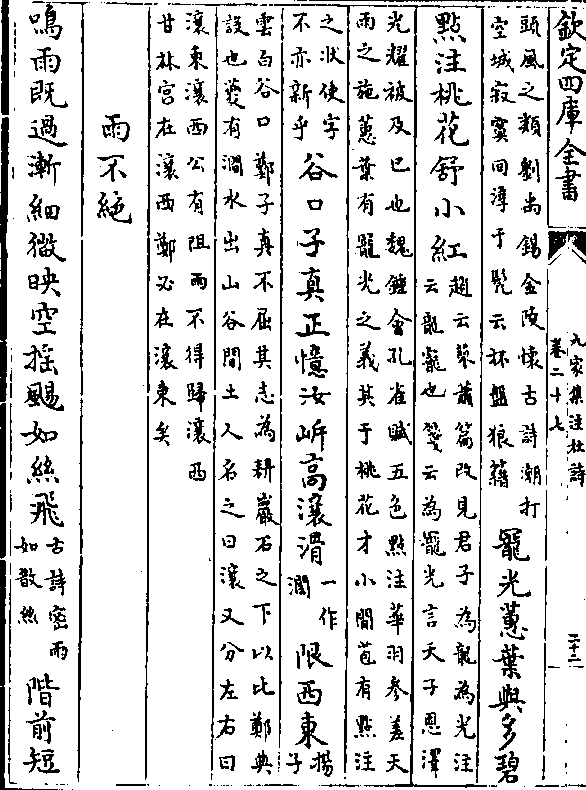 欽定四庫全書
九家集注杜詩
卷二十七
二十二
頭風之類劉禹錫金陵懷古詩潮打
空城寂寞回淳于髡云杯盤狼籍
寵光蕙葉與多碧
點注桃花舒小紅
趙云蓼蕭篇改見君子為龍為光注
云龍寵也箋云為寵光言天子恩澤
光耀被及已也魏鍾會孔雀賦五色點注華羽參差天
雨之施蕙葉有寵光之義其于桃花才小開苞有點注
之狀使字
不亦新乎
谷口子真正憶汝岍高瀼滑
一作
濶
限西東
揚
子
雲曰谷口鄭子真不屈其志為耕巖石之下以比鄭典
設也夔有澗水出山谷間土人名之曰瀼又分左右曰
瀼東瀼西公有阻雨不得歸瀼西
甘林宫在瀼西鄭必在瀼東矣
雨不絶
鳴雨既過漸細微映空揺颺如絲飛
古詩密雨
如散絲
階前短